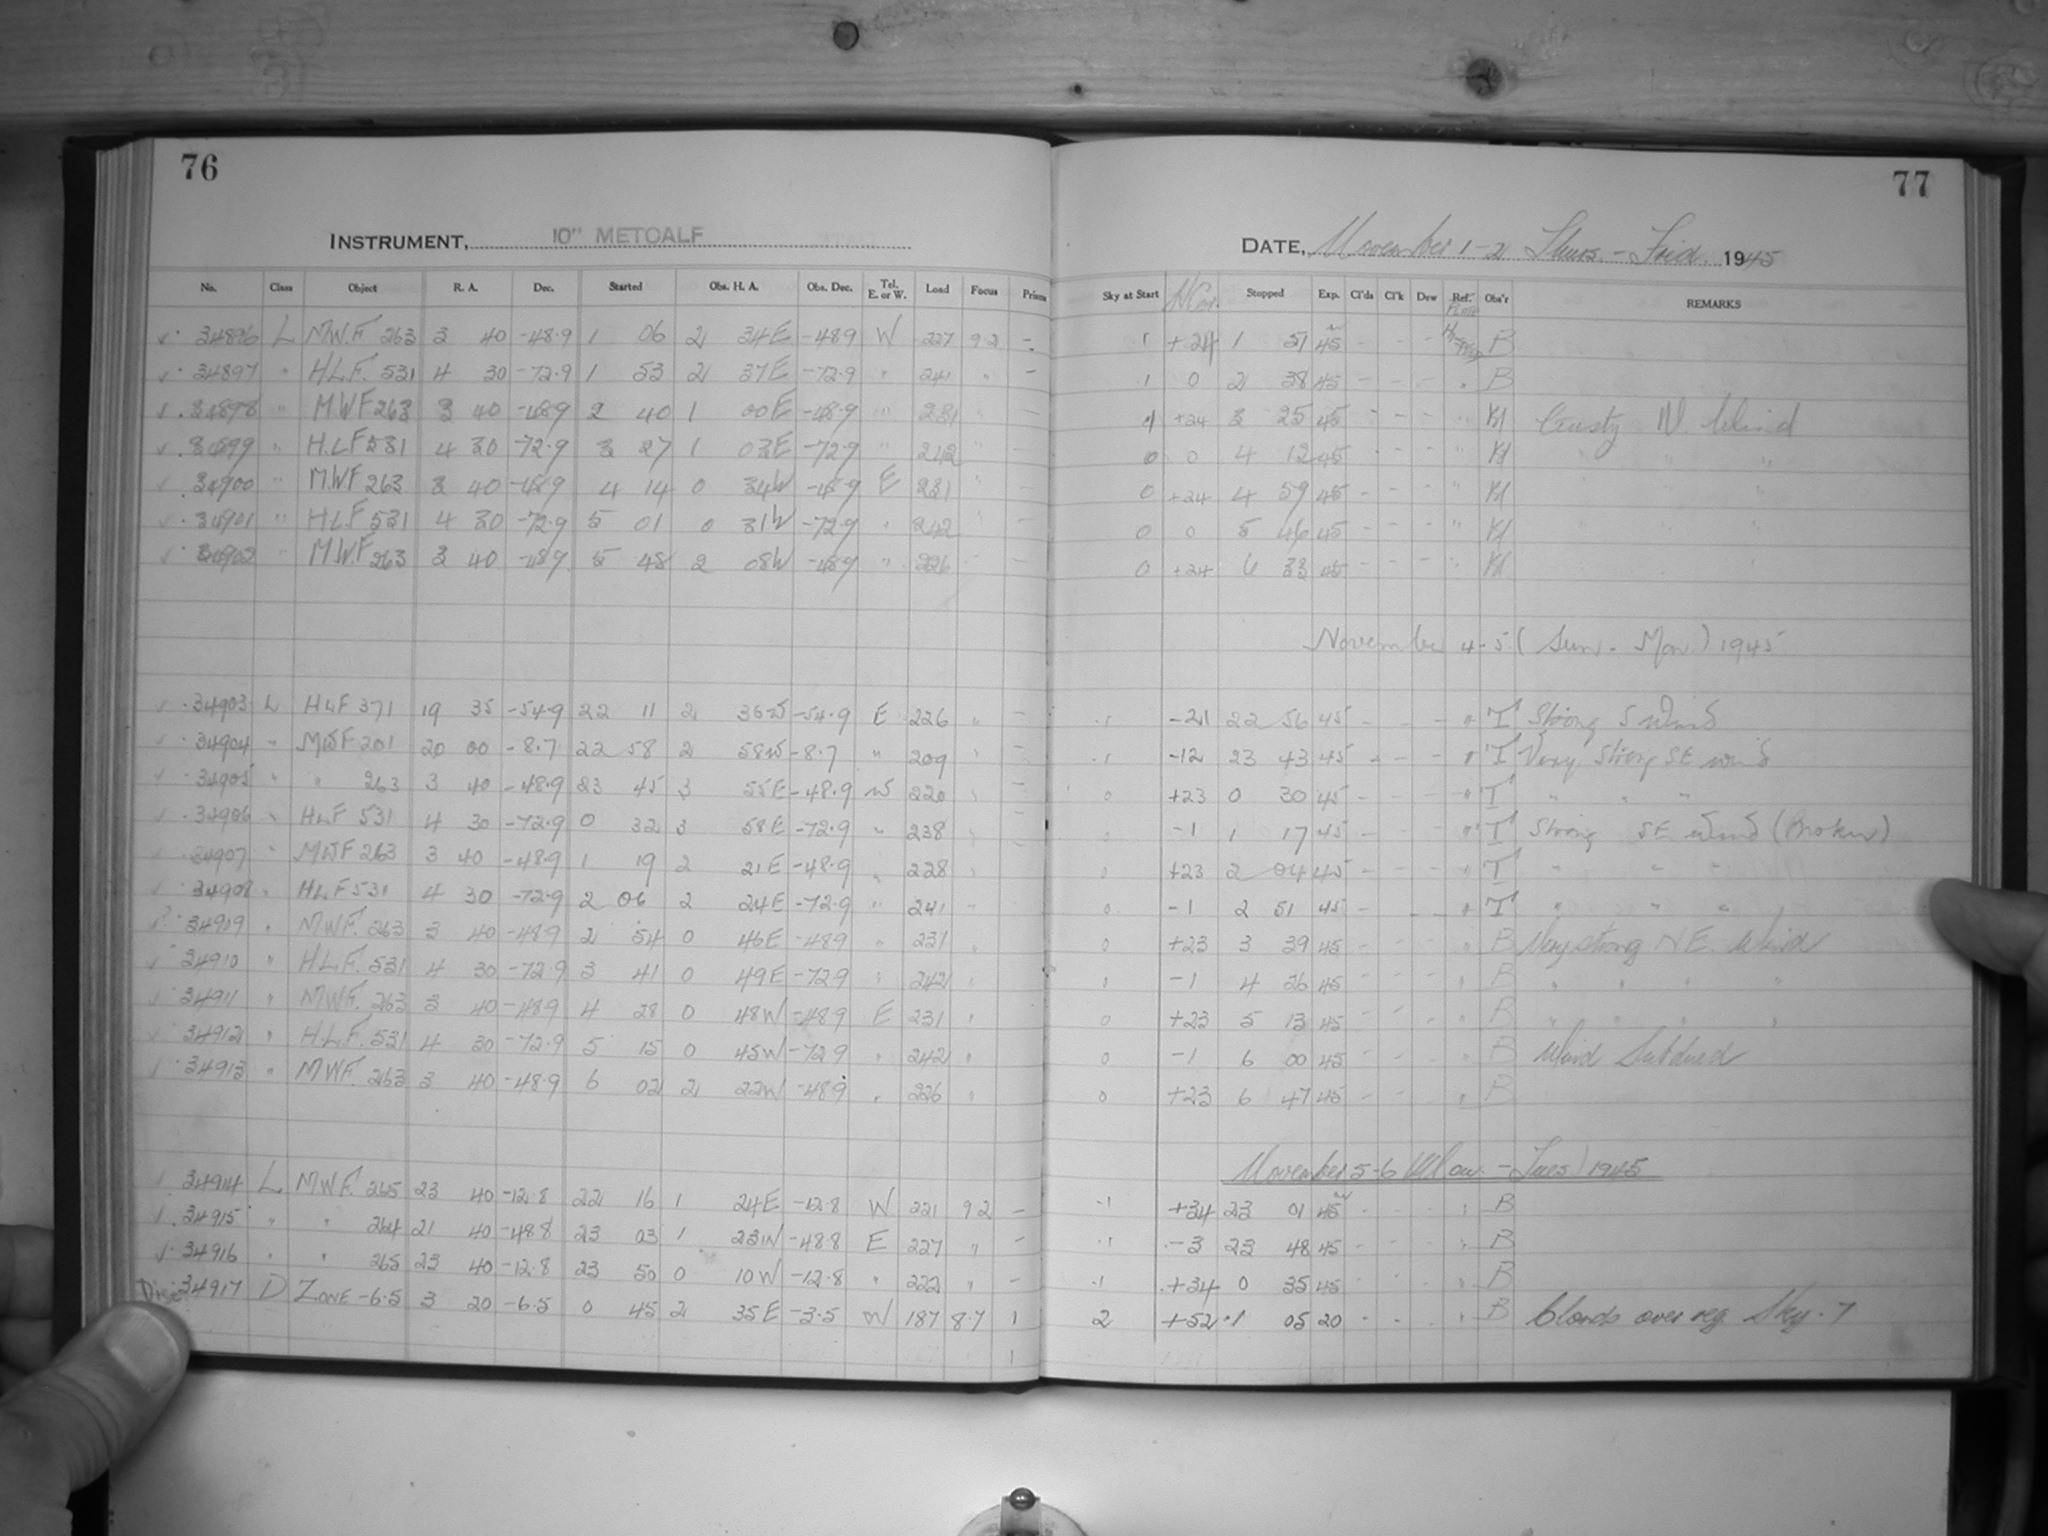 76
77
INSTRUMENT, 10" METCALF
DATE, November 1-2 Thurs. - Frid. 1945
No. Class Object R. A. Dec. Started Obs. H. A. Obs. Dec. Tel. E. or W. Load Focus Prism Sky at Start Stopped Exp. Cl'ds Cl'k Dew Ref. Plate Obs'r REMARKS
✓ · 34896 L M.W.F. 263 3 40 -48.9 1 06 2 34E -48.9 W 227 9.2 - .1 +24 1 51 45 - - - B
✓ · 34897 " H.L.F. 531 4 30 -72.9 1 53 2 37E -72.9 " 241 " - .1 0 2 38 45 - - - " B
✓ · 34898 " M.W.F 263 3 40 -48.9 2 40 1 00E -48.9 " 231 " - +24 3 25 45 - - - " Gusty N. Wind
✓ · 34899 " H.L.F 531 4 30 -72.9 3 27 1 03E -72.9 " 242 " - 0 0 4 12 45 - - - " " " "
✓ · 34900 " M.W.F 263 3 40 -48.9 4 14 0 34W -48.9 E 231 " - 0 +24 4 59 45 - - - " " " "
✓ · 34901 " H.L.F 531 4 30 -72.9 5 01 0 31W -72.9 " 242 " - 0 0 5 46 45 - - - "
✓ · 34902 " M.W.F 263 3 40 -48.9 5 48 2 08W -48.9 " 226 - 0 +24 6 33 45 - - - "
November 4-5 (Sun. - Mon.) 1945
✓ · 34903 L HLF 371 19 35 -54.9 22 11 2 36W -54.9 E 226 " - .1 -21 22 56 45 - - - " T Strong S wind
✓ · 34904 " MWF 201 20 00 -8.7 22 58 2 58W -8.7 " 209 " - .1 -12 23 43 45 - - - " T Very strong SE wind
✓ · 34905 " " 263 3 40 -48.9 23 45 3 55E -48.9 W 220 " - 0 +23 0 30 45 - - - " T " " "
✓ · 34906 " HLF 531 4 30 -72.9 0 32 3 58E -72.9 " 238 " - 0 -1 1 17 45 - - - " T Strong SE wind (Broken)
✓ · 34907 " MWF 263 3 40 -48.9 1 19 2 21E -48.9 " 228 " - 0 +23 2 04 45 - - - " T " " "
✓ · 34908 " HLF 531 4 30 -72.9 2 06 2 24E -72.9 " 241 - 0 -1 2 51 45 - - - " T " " "
✓? · 34909 " MWF. 263 3 40 -48.9 2 54 0 46E -48.9 " 231 " 0 +23 3 39 45 - - - " B Very strong N.E. Wind
✓ · 34910 " H.L.F. 531 4 30 -72.9 3 41 0 49E -72.9 " 242 " 0 -1 4 26 45 - - - " B " " " "
✓ · 34911 " MWF. 263 3 40 -48.9 4 28 0 48W -48.9 E 231 " 0 +23 5 13 45 - - - " B " " " "
✓ · 34912 " H.L.F. 531 4 30 -72.9 5 15 0 45W -72.9 " 242 " 0 -1 6 00 45 - - - " B Wind Subdued
✓ · 34913 " MWF. 263 3 40 -48.9 6 02 2 22W -48.9 " 226 " 0 +23 6 47 45 - - - " B
November 5-6 (Mon. - Tues) 1945
✓ 34914 L MWF. 265 23 40 -12.8 22 16 1 24E -12.8 W 221 9.2 - .1 +34 23 01 45 - - - " B
✓ · 34915 " " 264 21 40 -48.8 23 03 1 23W -48.8 E 227 " - .1 -3 23 48 45 - - - " B
✓ · 34916 " " 265 23 40 -12.8 23 50 0 10W -12.8 " 222 " - .1 +34 0 35 45 - - - " B
34917 D ZONE -6.5 3 20 -6.5 0 45 2 35E -3.5 W 187 8.7 1 2 +52 1 05 20 - - - " B Clouds over reg. Sky .7